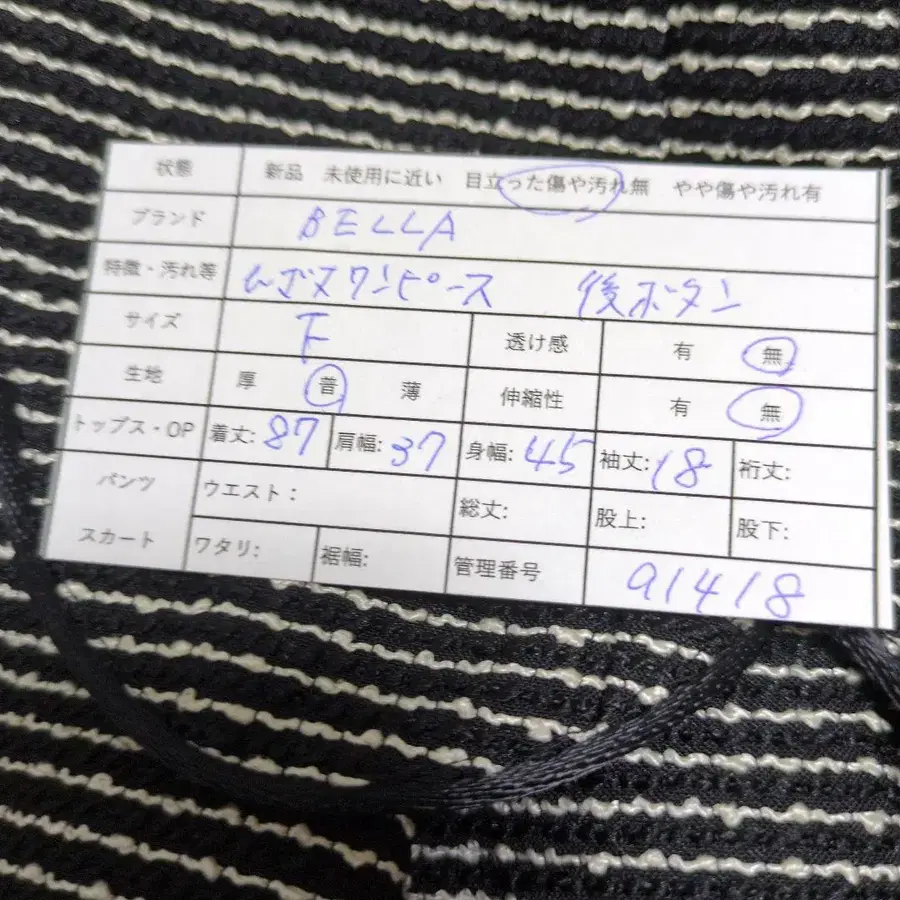 状態 新品 未使用に近い 目立った傷や汚れ無 やや傷や汚れ有
ブランド BELLA
特徴・汚れ等 ワンピース 後ボタン
サイズ F 透け感 有 無
生地 厚 普 薄 伸縮性 有 無
トップス・OP 着丈: 87 肩幅: 37 身幅: 45 袖丈: 18 裄丈:
パンツ ウエスト: 総丈: 股上: 股下:
スカート ワタリ: 裾幅: 管理番号 91418